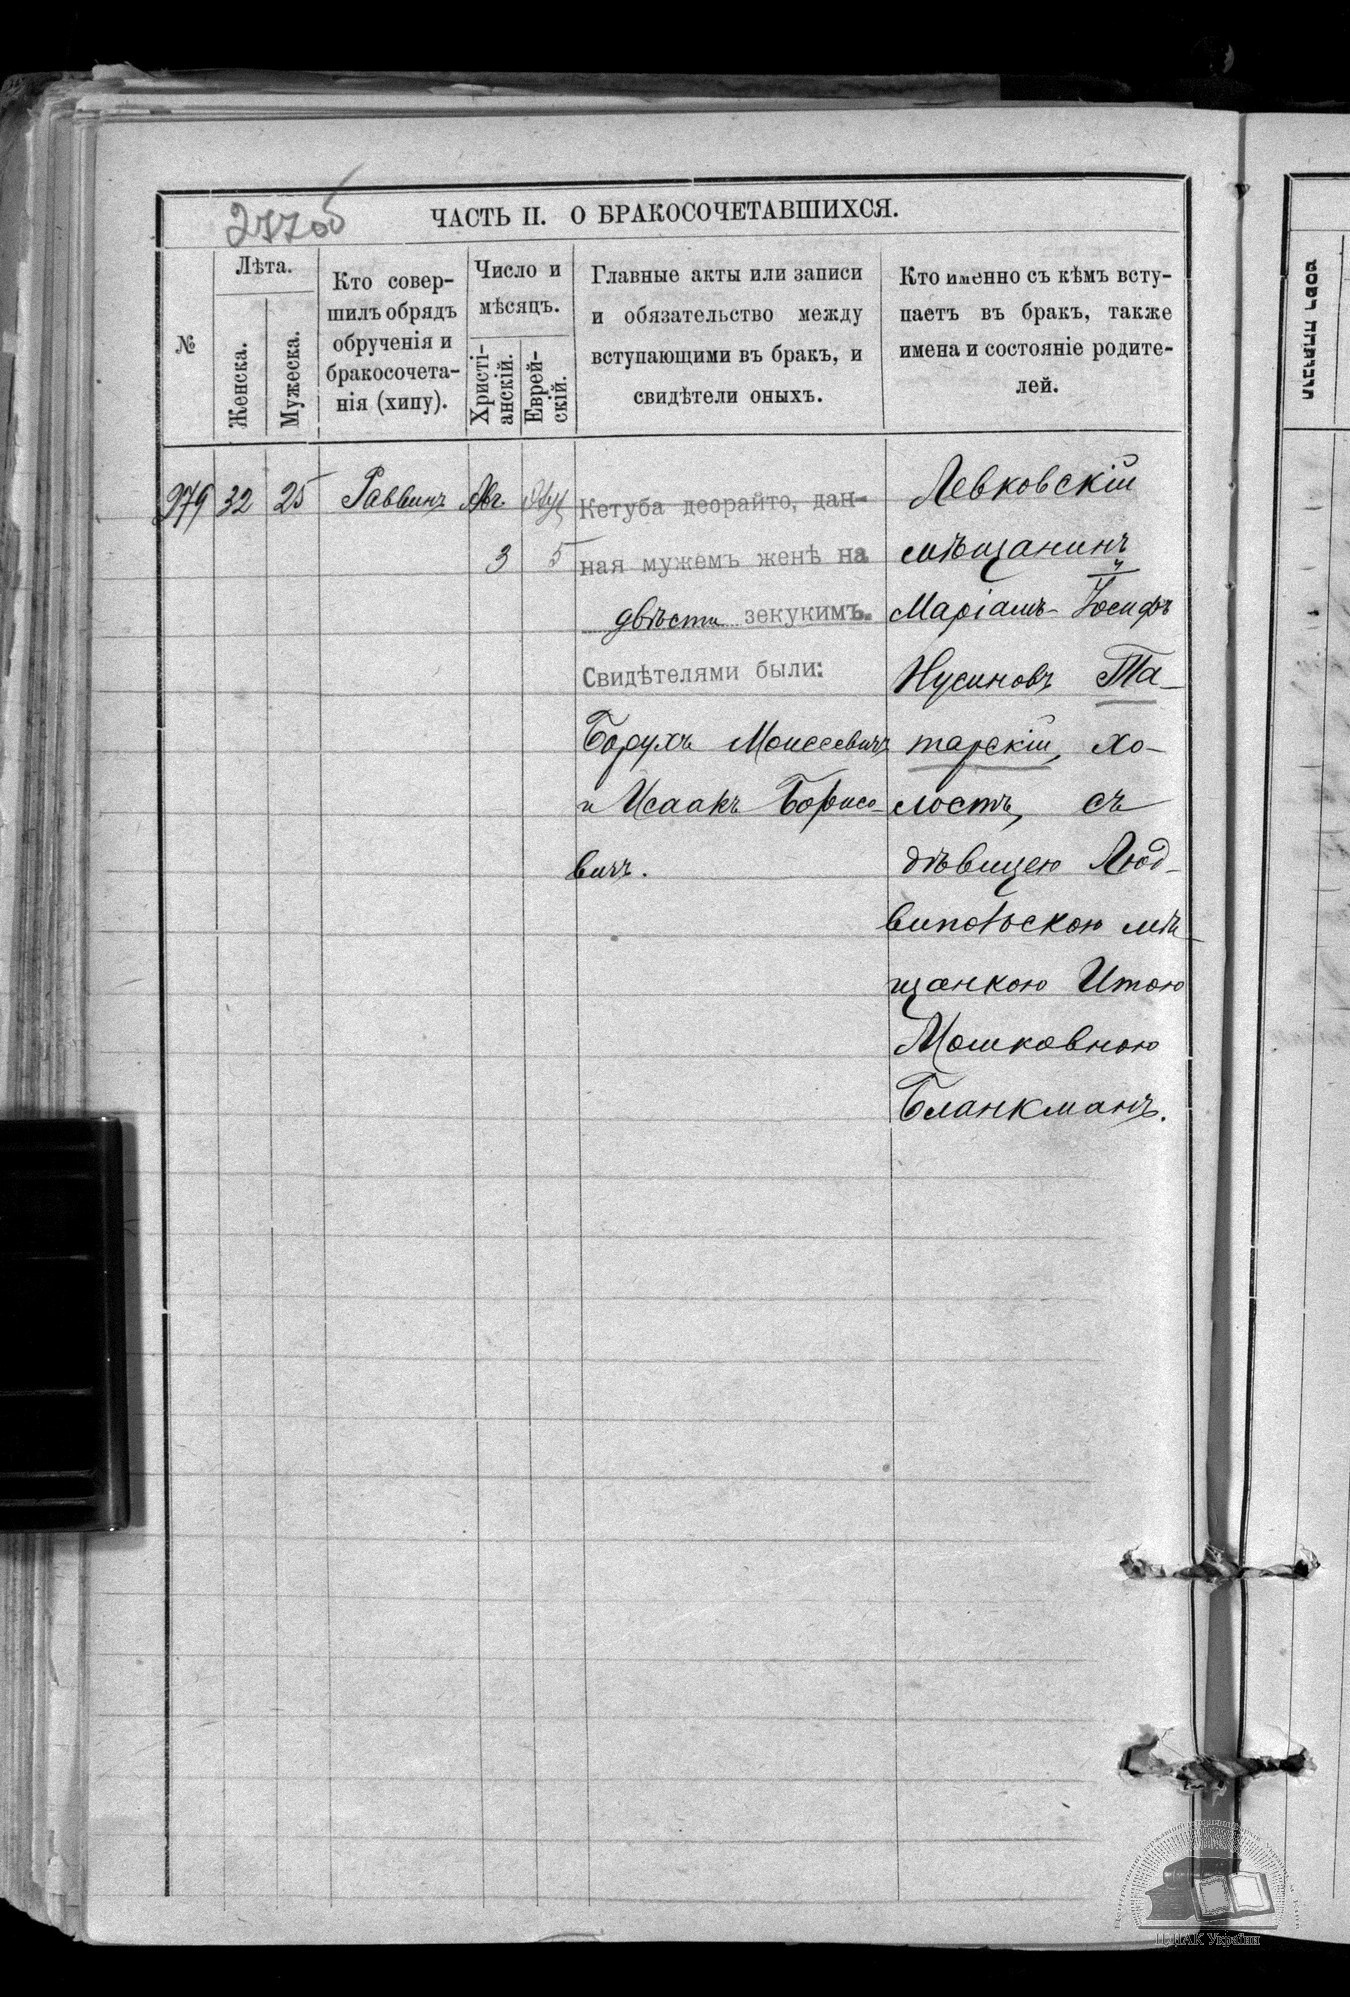 277об
ЧАСТЬ II. О БРАКОСОЧЕТАВШИХСЯ.
№
Лѣта.
Женска.
Мужеска.
Кто совер-
шилъ обрядъ
обрученія и
бракосочета-
нія (хипу).
Число и
мѣсяцъ.
Христі-
анскій.
Еврей-
скій.
Главные акты или записи
и обязательство между
вступающими въ бракъ, и
свидѣтели оныхъ.
Кто именно съ кѣмъ всту-
паетъ въ бракъ, также
имена и состояніе родите-
лей.
279 32 25 Раввинъ Авг.
3 5
Кетуба деорайто, дан-
ная мужемъ женѣ на
двѣсти зекукимъ.
Свидѣтелями были:
Борухъ Моисеевичъ
и Исаакъ Борисо-
вичъ.
Левковскій
мѣщанинъ
Маріамъ-Іосифъ
Нусиновъ Та-
тарскій, хо-
лостъ, съ
дѣвицею Люд-
випольскою мѣ-
щанкою Итою
Мошковною
Бланкманъ.
ЦДІАК України